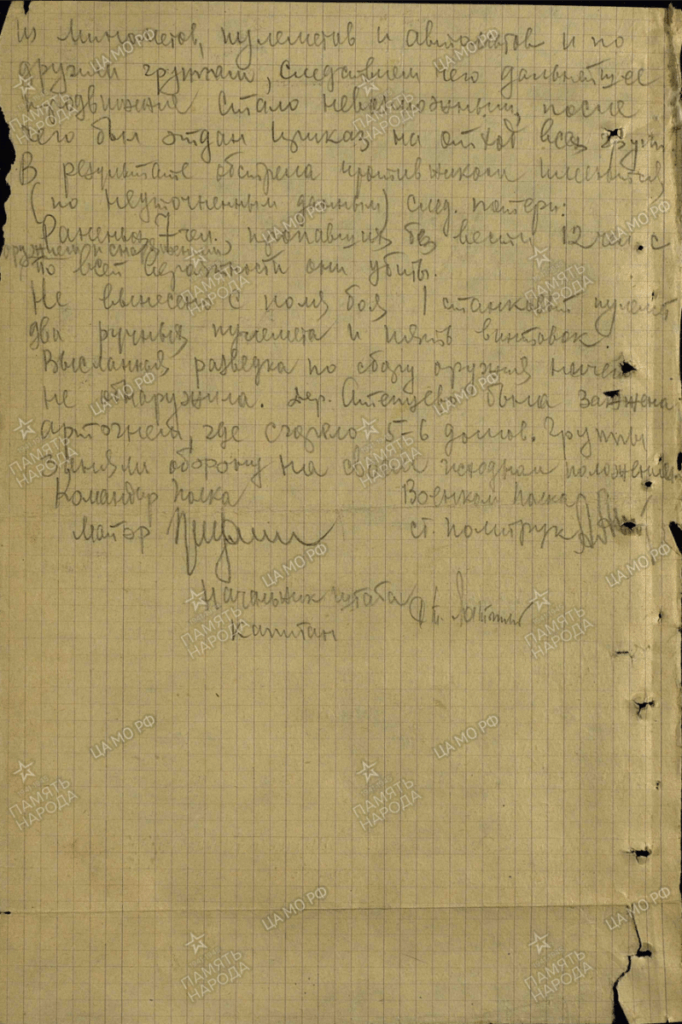 из минометов, пулеметов и автоматов и по
другим группам, следствием чего дальнейшее
продвижение стало невозможным, после
чего был отдан приказ на отход всех групп
В результате обстрела противником имеются
(по неуточненным данным) след. потери:
Раненых 7 чел. пропавших без вести 12 чел. с
оружием и снаряжением,
по всей вероятности они убиты.
Не вынесено с поля боя 1 станковый пулемет
два ручных пулемета и пять винтовок.
Высланная разведка по сбору оружия ничего
не обнаружила. дер. была зажжена
артогнем, где сгорело 5-6 домов. Группы
заняли оборону на своем исходном положении.
Командир полка Военком полка
Майор ст. политрук
Начальник штаба
Капитан
ПАМЯТЬ НАРОДА
ЦАМО.РФ